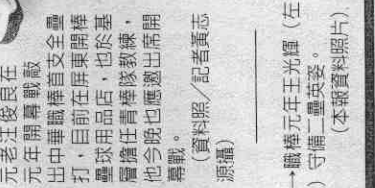 元老汪俊良在
元年開幕戰敲
出中華職棒首支全壘
打，目前在屏東開棒
壘球用品店，也於基
層擔任青棒隊教練，
他今晚也應邀出席開
幕戰。
（資料照／記者黃志
源攝）
→職棒元年王光輝（左
）守備二壘英姿。
（本報資料照片）